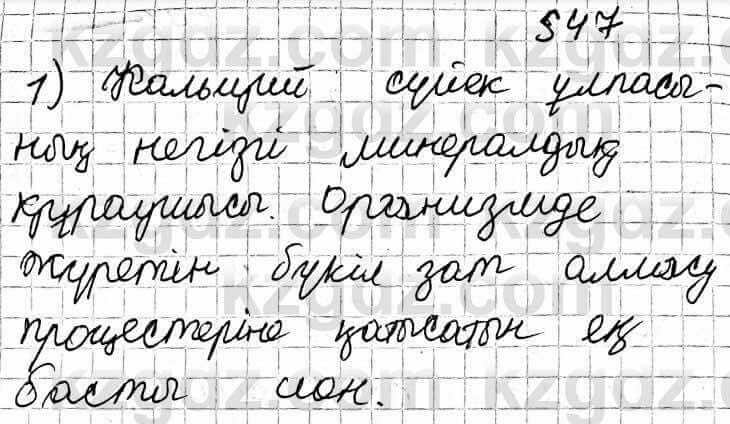 §47
1) Кальций сүйек ұлпасы-
ның негізгі минералдық
құраушысы. Организмде
жүретін бүкіл зат алмасу
процестеріне қатысатын ең
басты ион.